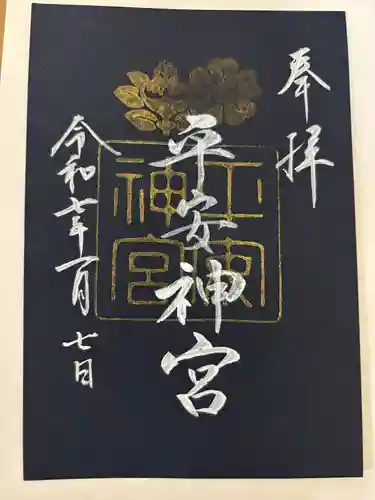 奉拝
平安神宮
平安神宮
令和七年一月七日